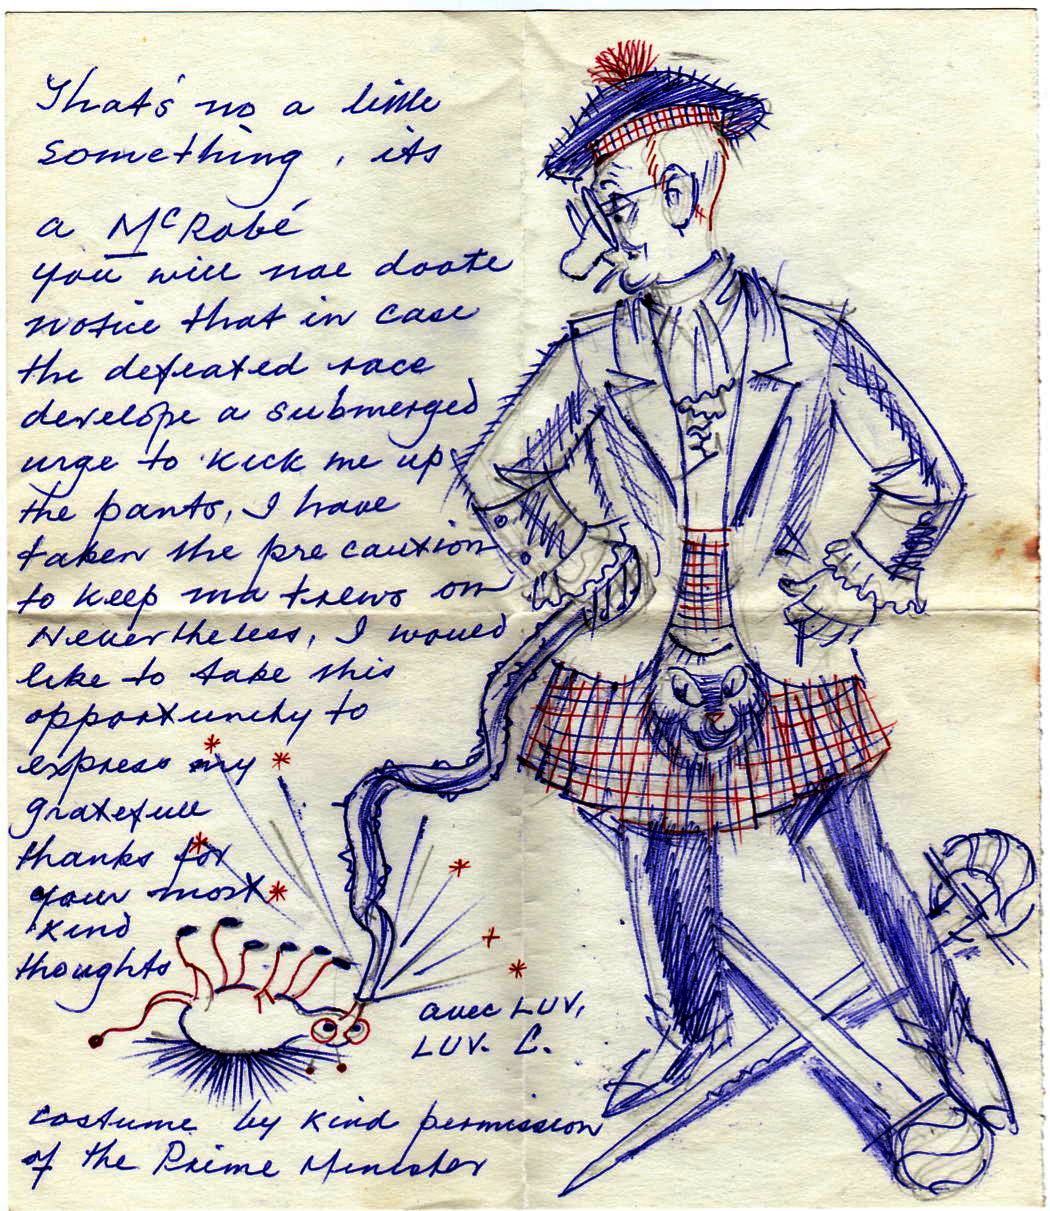 That's no a little
something, its
a McRobé
you will nae doote
notice that in case
the defeated race
develope a submerged
urge to kick me up
the pants, I have
taken the pre caution
to keep ma trews on
Nevertheless, I would
like to take this
opportunity to
express my
gratefull
thanks for
your most
kind
thoughts
avec LUV,
LUV. C.
costume by kind permission
of the Prime Minister